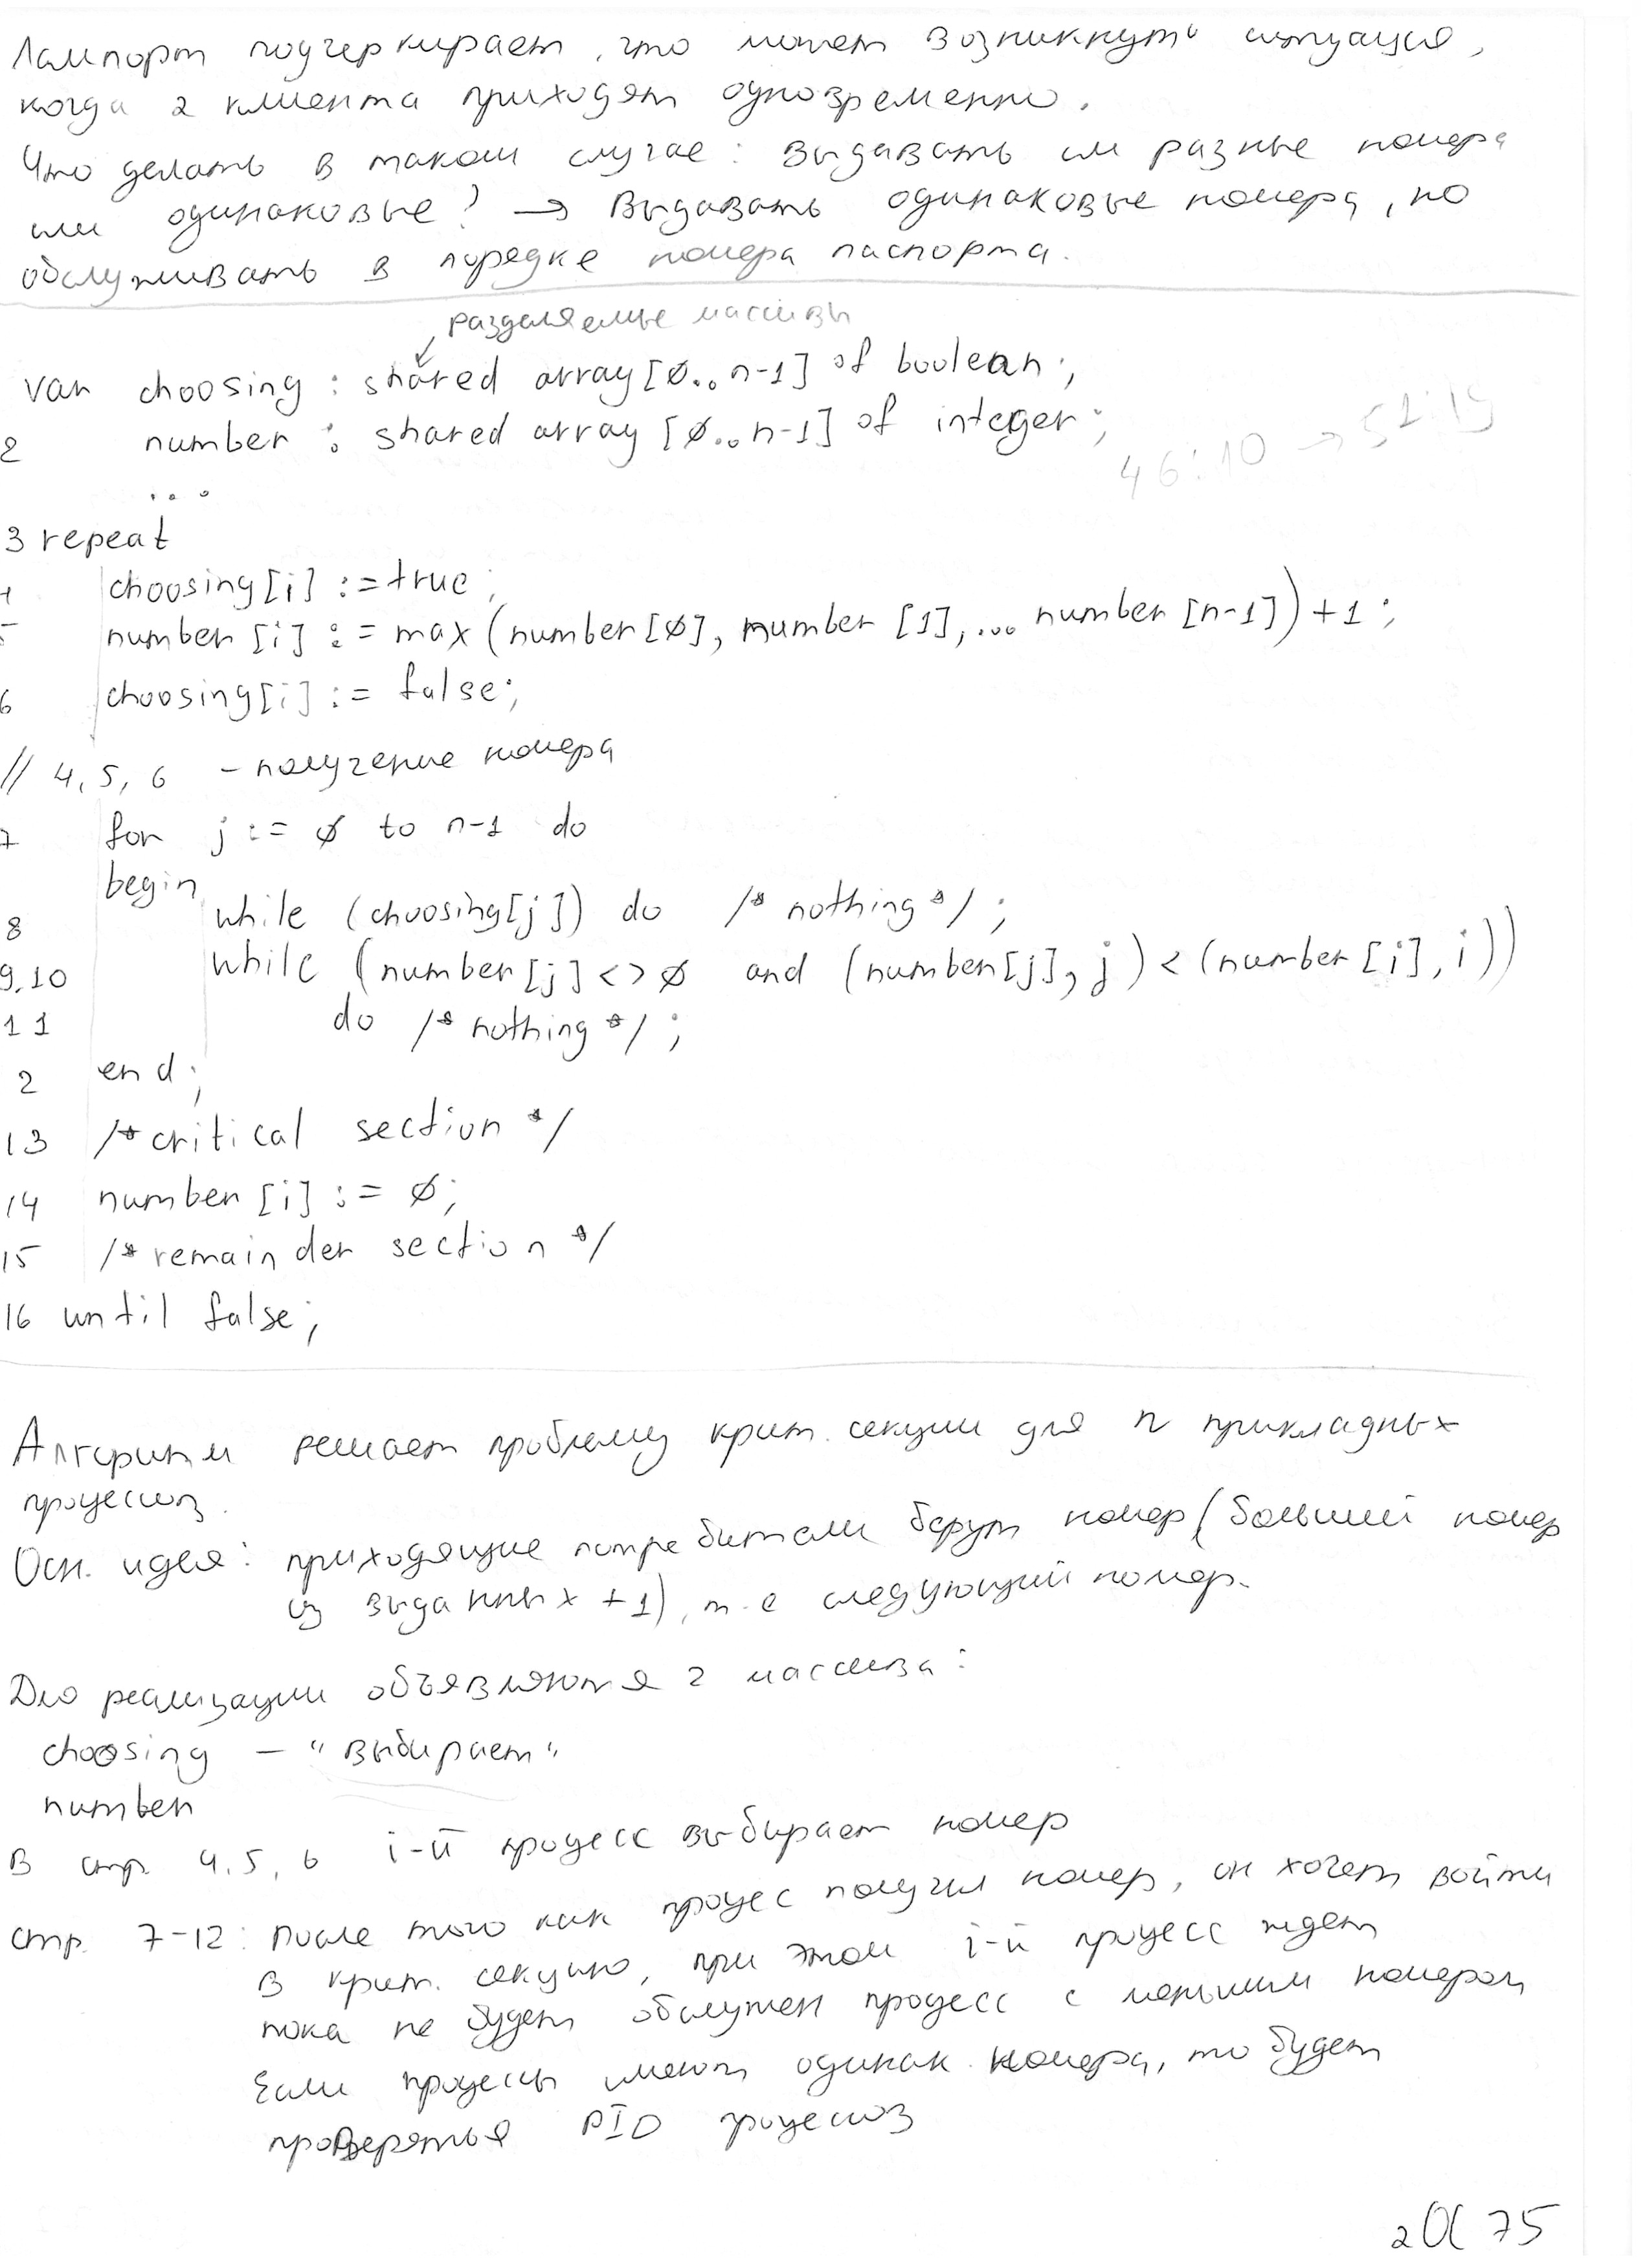 Лампорт подчеркивает, что может возникнуть ситуация,
когда 2 клиента приходят одновременно.
Что делать в таком случае: выдавать им разные номера
или одинаковые? → Выдавать одинаковые номера, но
обслуживать в порядке номера паспорта.
разделяемые массивы
var choosing : shared array [0..n-1] of boolean;
2 number : shared array [0..n-1] of integer;
46:10 → 51:15
...
3 repeat
4 choosing[i] := true;
5 number [i] := max (number [0], number [1], ... number [n-1]) + 1;
6 choosing[i] := false;
// 4, 5, 6 - получение номера
7 for j := 0 to n-1 do
begin
8 while (choosing[j]) do /* nothing */ ;
9,10 while (number [j] <> 0 and (number[j], j) < (number [i], i))
11 do /* nothing */ ;
2 end;
13 /* critical section */
14 number [i] := 0;
15 /* remainder section */
16 until false;
Алгоритм решает проблему крит. секции для n прикладных
процессов.
Осн. идея: приходящие потребители берут номер (больший номер
из выданных + 1), т.е следующий номер.
Для реализации объявляются 2 массива:
choosing — "выбирает"
number
В стр. 4, 5, 6 i-й процесс выбирает номер
стр. 7-12: После того как процес получил номер, он хочет войти
в крит. секцию, при этом i-й процесс ждет
пока не будет обслужен процесс с меньшим номером
Если процессы имеют одинак. номера, то будет
проверяться PID процессов
2ОС 75